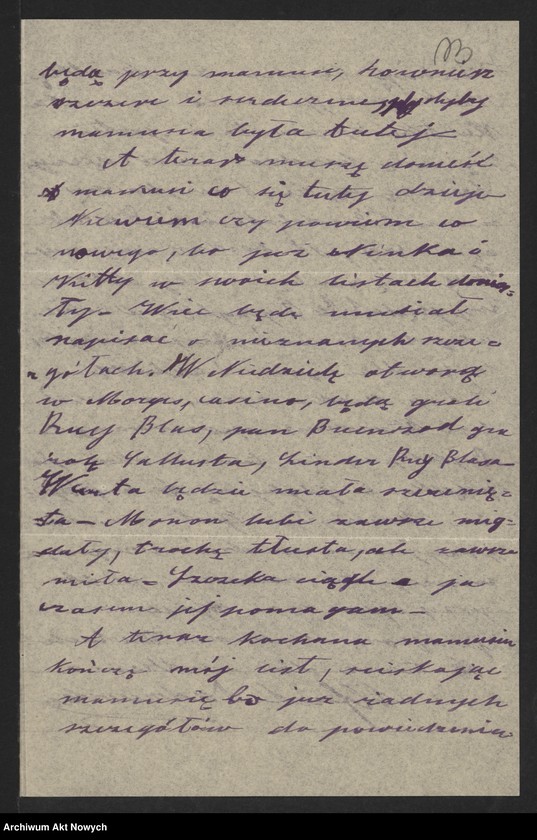 będą przy mamusi, również
szczere i serdeczne, gdyby
mamusia była tutej
A teraz muszę donieść
mamusi co się tutej dzieje
Niewiem czy powiem co
nowego, bo już Ninka i
Kitty w swoich listach donios=
ły – Więc będę musiał
napisać o nieznanych szcze=
gółach. W Niedzielę otworzą
w Morges, casino, będą grali
Ruy Blas, pan Buenzod gra
rolę Salusta, Linder Ruy Blasa –
Warta będzie miała szczenię=
ta – Monon lubi zawsze mig=
dały, trochę tłusta, ale zawsze
miła – ciągle a ja
czasem jej pomagam –
A teraz kochana mamusiu
kończę mój list, ściskając
mamusię bo już żadnych
szczegółów do powiedzenia
Archiwum Akt Nowych